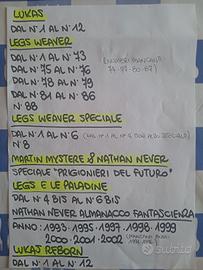 LUKAS
DAL N°1 AL N°12
LEGS WEAVER
DAL N°1 AL N°73 (NUMERI MANCANTI
DAL N°75 AL N°76 74-77-80-87)
DAL N°78 AL N°79
DAL N°81 AL N°86
N°88
LEGS WEAVER SPECIALE
DAL N°1 AL N°6
N°8
MARTIN MYSTERE & NATHAN NEVER
SPECIALE "PRIGIONIERI DEL FUTURO"
LEGS E LE PALADINE
DAL N°4 BIS AL N°6 BIS
NATHAN NEVER ALMANACCO FANTASCIENZA
ANNO: 1993-1995-1997-1998-1999
2000-2001-2002
LUKAS REBORN
DAL N°1 AL N°12
subito